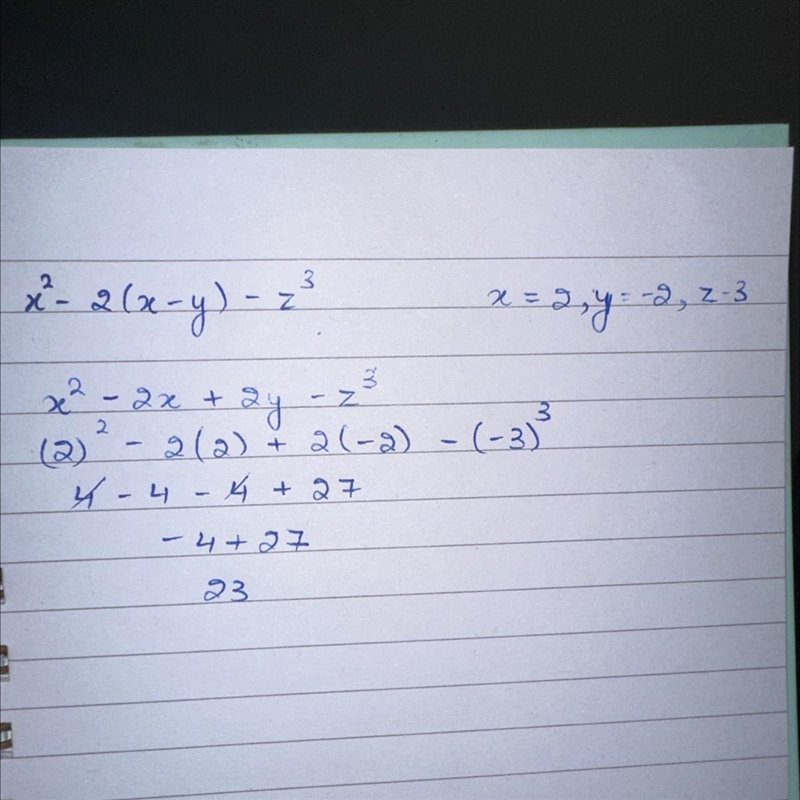 x² - 2(x-y) - z³ x = 2, y = -2, z -3
x² - 2x + 2y - z³
(2)² - 2(2) + 2(-2) - (-3)³
4 - 4 - 4 + 27
- 4 + 27
23